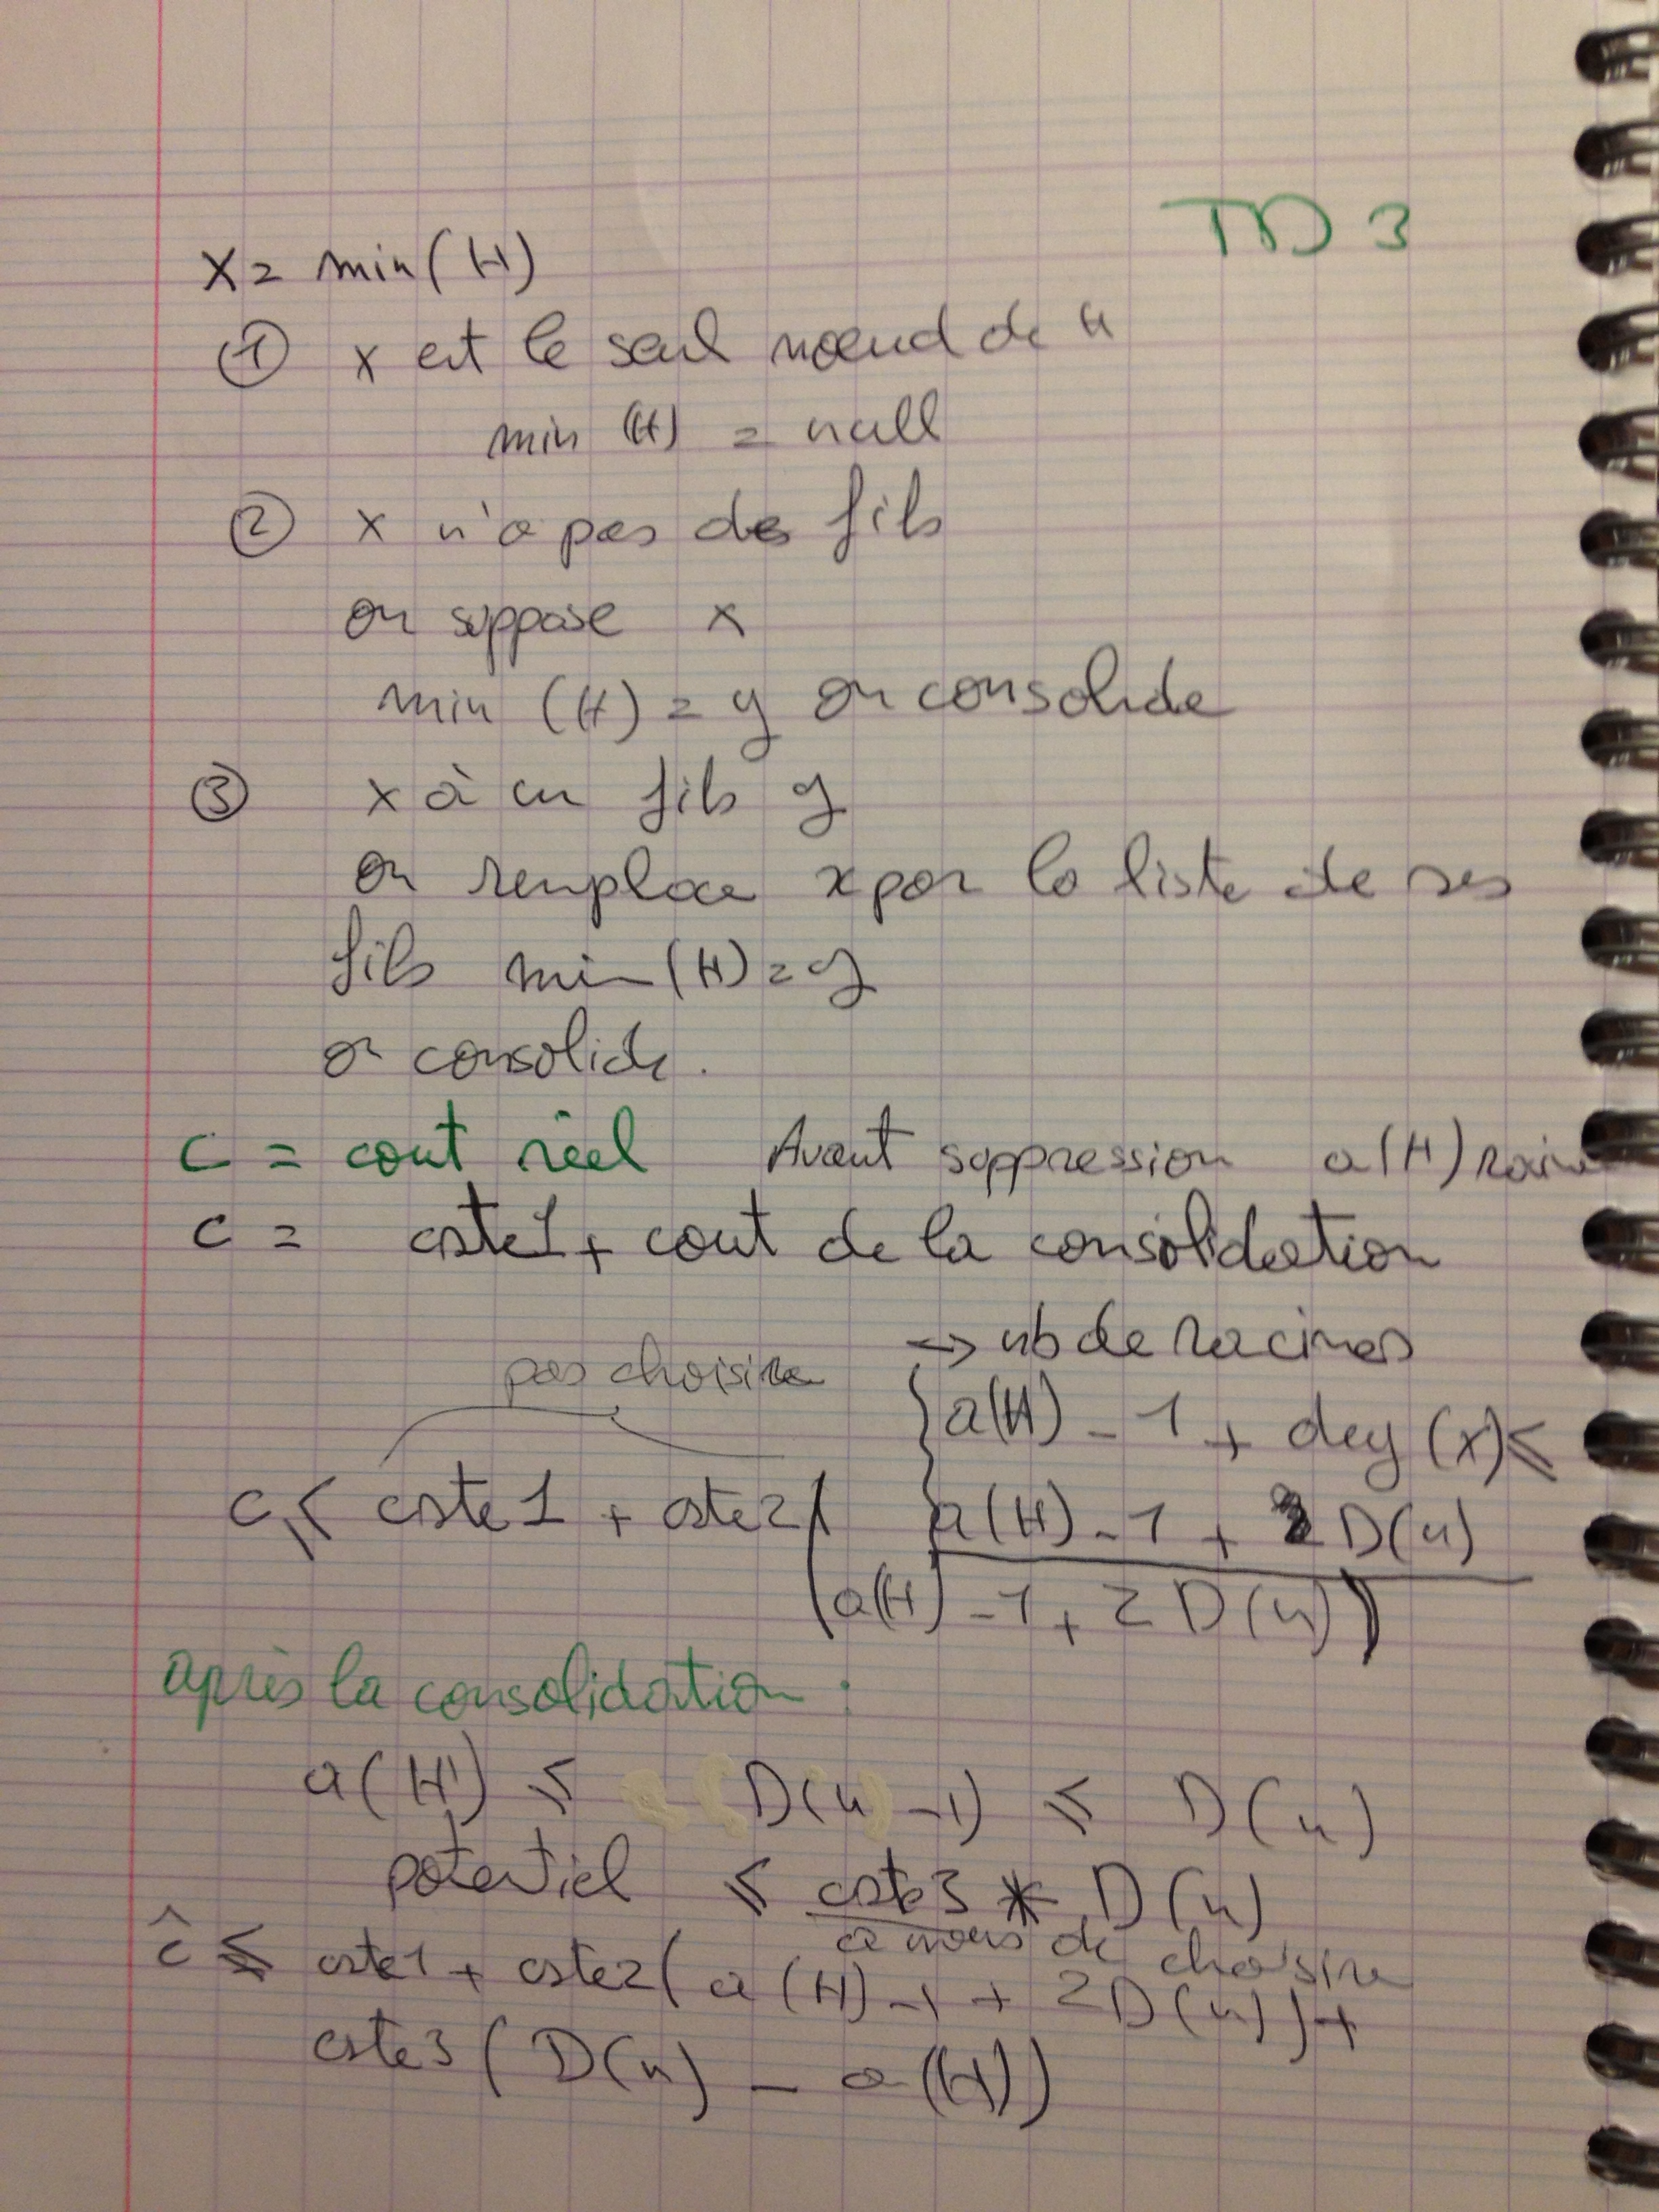 TD 3
x = min(H)
① x est le seul nœud de H
min (H) = null
② x n'a pas des fils
on suppose x
min (H) = y on consolide
③ x à un fils y
on remplace x par la liste de ses
fils min(H) = y
on consolide.
c = cout réel Avant suppression a(H) racin
c = cste1 + cout de la consolidation
→ nb de racines
pas choisire { a(H) - 1 + deg (x) ≤
c ≤ cste1 + cste2 ( a(H) - 1 + 2 D(n)
(a(H) - 1 + 2 D(n))
après la consolidation :
a(H') ≤ D(n-1) ≤ D(n)
potentiel ≤ cste3 * D(n)
a nous de choisire
ĉ ≤ cste1 + cste2 ( a(H) - 1 + 2D(n)) +
cste3 ( D(n) - a(H))